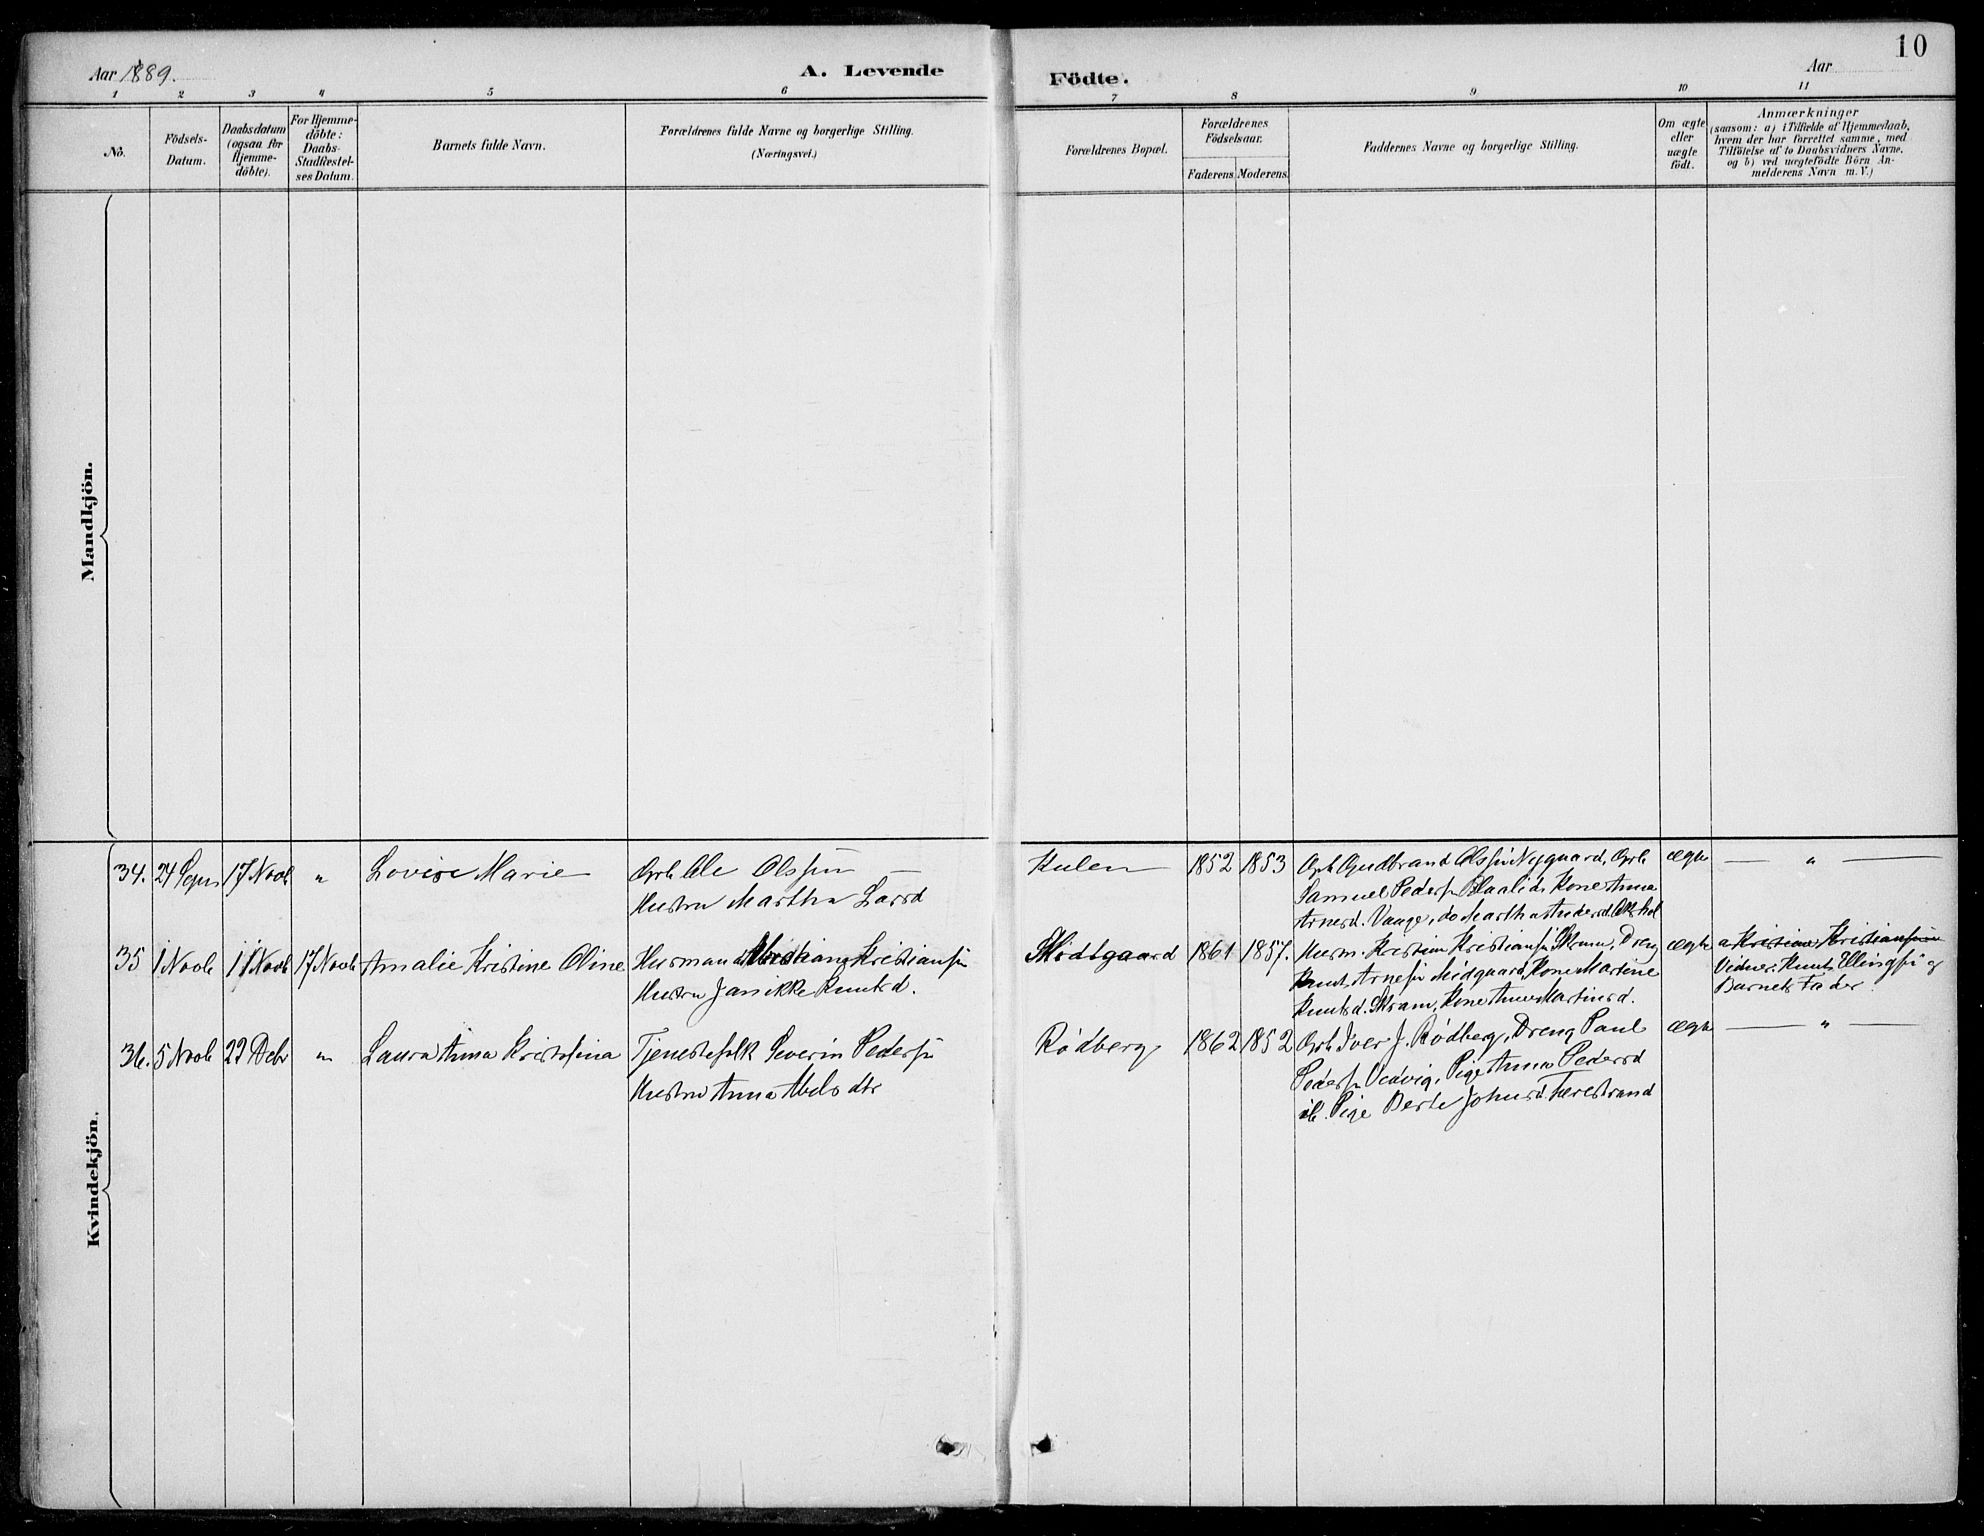 10
Aar 1889.
A. Levende
Födte.
Aar
1 2 3 4 5 6 7 8 9 10 11
No.
Födsels-
Datum.
Daabsdatum
(ogsaa for
Hjemme-
döbte).
For Hjemme-
döbte:
Daabs-
Stadfæstel-
ses Datum.
Barnets fulde Navn.
Forældrenes fulde Navne og borgerlige Stilling.
(Næringsvei.)
Forældrenes Bopæl.
Forældrenes
Födselsaar.
Faderens
Moderens.
Faddernes Navne og borgerlige Stilling.
Om ægte
eller
uægte
födt.
Anmærkninger
(saasom: a) i Tilfælde af Hjemmedaab,
hvem der har forrettet samme, med
Tilföielse af to Daabsvidners Navne,
og b) ved uægtefödte Börn An-
melderens Navn m. V.)
Mandkjön.
Kvindekjön.
34. 24 Septr 17 Novb " Lovise Marie
Grb. Ole Olssøn
Hustru Martha Larsd
Kulen 1852 1853
Grb. Gudbrand Olssøn Nygaard, Grb.
Samuel Peders. Blaalid, Kone Anna
Arnesd. Vaage, do Martha Andersd.
ægte — " —
35 1 Novb 11 Novb 17 Novb Amalie Kristine Oline
Husmand Kristian Kristiansøn
Hustru Jannikke Knutsd.
Midtgaard 1861 1857.
Husm. Kristian Kristiansøn Skram, Dreng
Knut Arnesøn Midgaard, Kone Martine
Knutsd. Skram, Kone Anne Martinsd.
ægte
a Kristian Kristiansøn
Vidner: Knut Ellingsøn og
Barnets Fader.
36. 5 Novb 29 Debr " Laura Anna Kristofina
Tjenestefolk Severin Pedersøn
Hustru Anna Abelsdtr
Rødberg 1862 1852
Grb. Iver J. Rødberg, Dreng Paul
Peders. Vedvig, Pige Anna Pedersd
ib. Pige Berte Johnsd. Færestrand
ægte — " —